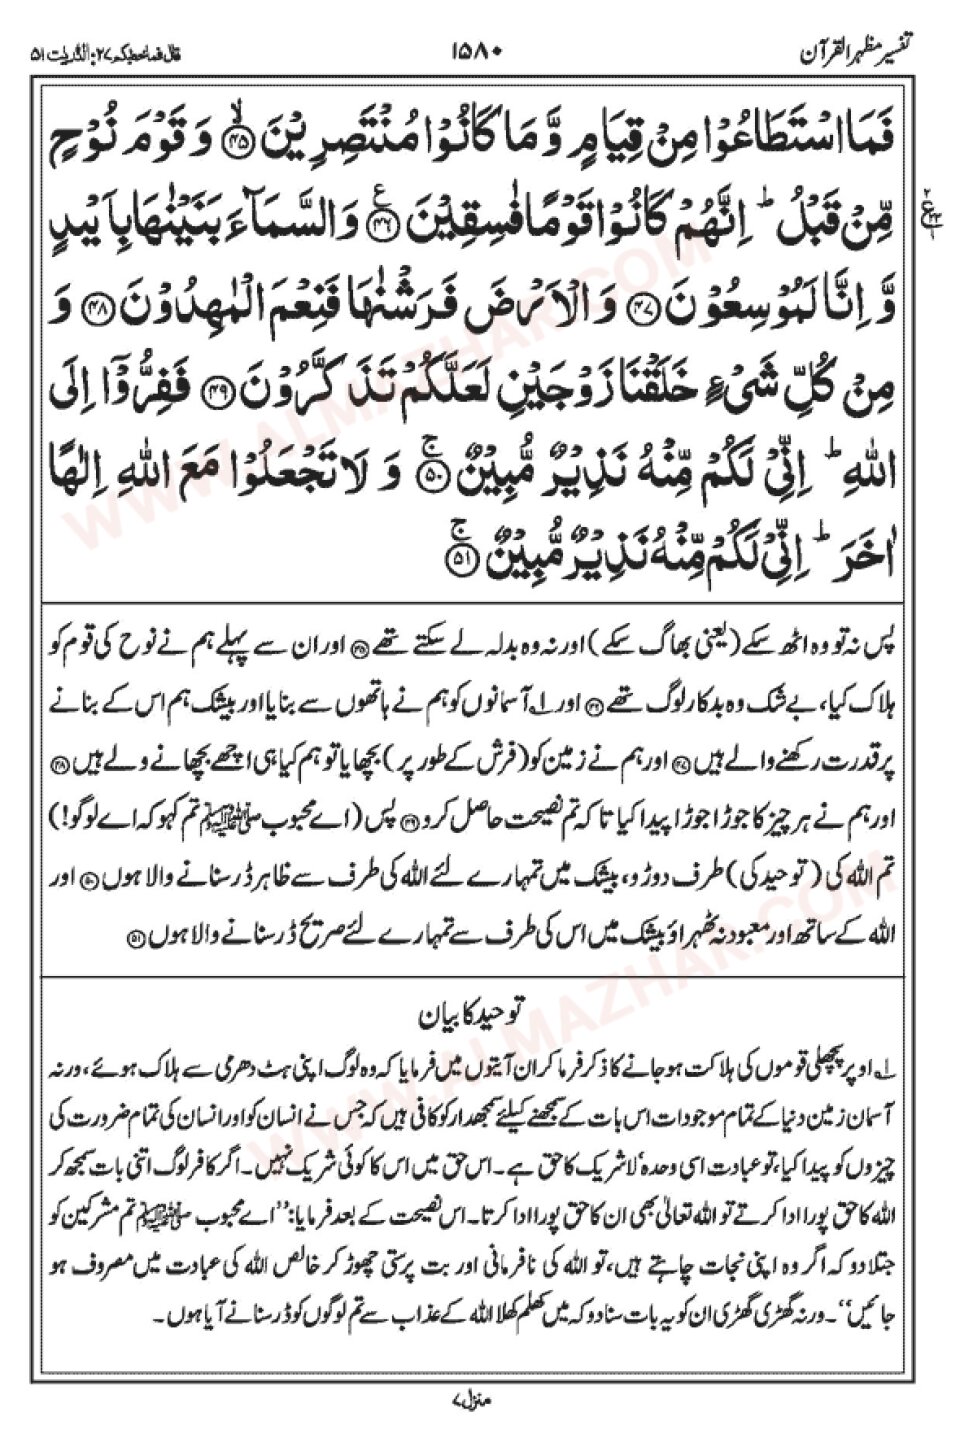 تفسیر مظہر القرآن
۱۵۸۰
قال فما خطبکم ۲۷: الذّٰریٰت ۵۱
فَمَا اسْتَطَاعُوْا مِنْ قِیَامٍ وَّ مَا كَانُوْا مُنْتَصِرِیْنَۙ ﴿۴۵﴾ وَ قَوْمَ نُوْحٍ
مِّنْ قَبْلُ ؕ اِنَّهُمْ كَانُوْا قَوْمًا فٰسِقِیْنَ ﴿۴۶﴾ ع وَ السَّمَآءَ بَنَیْنٰهَا بِاَیْىدٍ
وَّ اِنَّا لَمُوْسِعُوْنَ ﴿۴۷﴾ وَ الْاَرْضَ فَرَشْنٰهَا فَنِعْمَ الْمٰهِدُوْنَ ﴿۴۸﴾ وَ
مِنْ كُلِّ شَیْءٍ خَلَقْنَا زَوْجَیْنِ لَعَلَّكُمْ تَذَكَّرُوْنَ ﴿۴۹﴾ فَفِرُّوْۤا اِلَى
اللّٰهِ ؕ اِنِّیْ لَكُمْ مِّنْهُ نَذِیْرٌ مُّبِیْنٌۚ ﴿۵۰﴾ وَ لَا تَجْعَلُوْا مَعَ اللّٰهِ اِلٰهًا
اٰخَرَ ؕ اِنِّیْ لَكُمْ مِّنْهُ نَذِیْرٌ مُّبِیْنٌۚ ﴿۵۱﴾
پس نہ تو وہ اٹھ سکے (یعنی بھاگ سکے) اور نہ وہ بدلہ لے سکتے تھے ﴿۴۵﴾ اور ان سے پہلے ہم نے نوح کی قوم کو
ہلاک کیا، بے شک وہ بدکار لوگ تھے ﴿۴۶﴾ اور ۱؎ آسمانوں کو ہم نے ہاتھوں سے بنایا اور بیشک ہم اس کے بنانے
پر قدرت رکھنے والے ہیں ﴿۴۷﴾ اور ہم نے زمین کو (فرش کے طور پر) بچھایا تو ہم کیا ہی اچھے بچھانے ولے ہیں ﴿۴۸﴾
اور ہم نے ہر چیز کا جوڑا جوڑا پیدا کیا تاکہ تم نصیحت حاصل کرو ﴿۴۹﴾ پس (اے محبوب ﷺ تم کہو کہ اے لوگو!)
تم اللہ کی (توحید کی) طرف دوڑو، بیشک میں تمہارے لئے اللہ کی طرف سے ظاہر ڈر سنانے والا ہوں ﴿۵۰﴾ اور
اللہ کے ساتھ اور معبود نہ ٹھہراؤ بیشک میں اس کی طرف سے تمہارے لئے صریح ڈر سنانے والا ہوں ﴿۵۱﴾
توحید کا بیان
۱؎ اوپر پچھلی قوموں کی ہلاکت ہو جانے کا ذکر فرما کر ان آیتوں میں فرمایا کہ وہ لوگ اپنی ہٹ دھرمی سے ہلاک ہوئے، ورنہ
آسمان زمین دنیا کے تمام موجودات اس بات کے سمجھنے کیلئے سمجھدار کو کافی ہیں کہ جس نے انسان کو اور انسان کی تمام ضرورت کی
چیزوں کو پیدا کیا، تو عبادت اسی وحدہٗ لاشریک کا حق ہے۔ اس حق میں اس کا کوئی شریک نہیں۔ اگر کافر لوگ اتنی بات سمجھ کر
اللہ کا حق پورا ادا کرتے تو اللہ تعالیٰ بھی ان کا حق پورا ادا کرتا۔ اس نصیحت کے بعد فرمایا: "اے محبوب ﷺ تم مشرکین کو
جتلادو کہ اگر وہ اپنی نجات چاہتے ہیں، تو اللہ کی نافرمانی اور بت پرستی چھوڑ کر خالص اللہ کی عبادت میں مصروف ہو
جائیں"۔ ورنہ گھڑی گھڑی ان کو یہ بات سنادو کہ میں کھلم کھلا اللہ کے عذاب سے تم لوگوں کو ڈر سنانے آیا ہوں۔
منزل ۷
WWW.ALMAZHAR.COM
WWW.ALMAZHAR.COM